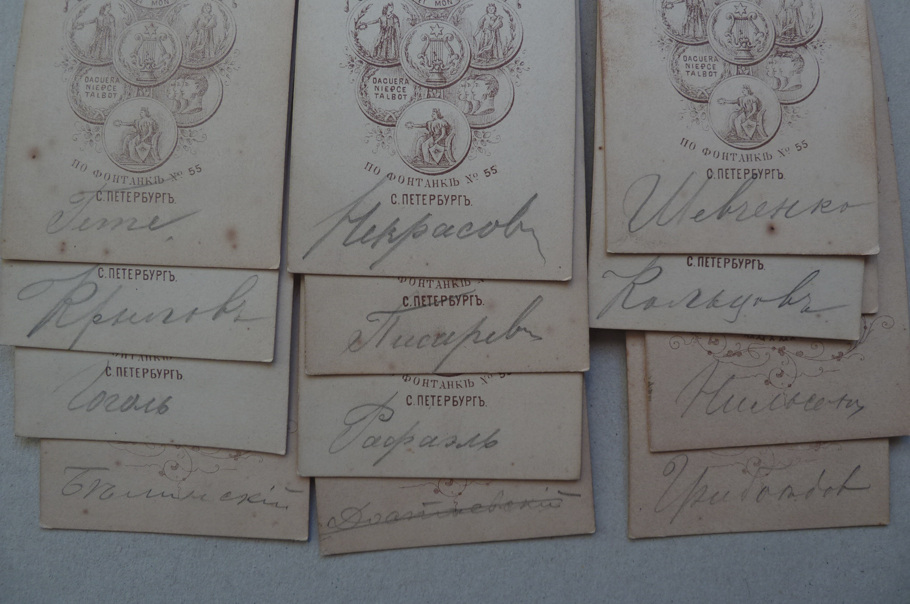 DAGUER
NIEPCE
TALBOT
ПО ФОНТАНКѢ № 55
С.ПЕТЕРБУРГЪ.
Гете
С.ПЕТЕРБУРГЪ.
Крыловъ.
С.ПЕТЕРБУРГЪ.
Гоголь
Бѣлинскій
DAGUER
NIEPCE
TALBOT
ПО ФОНТАНКѢ № 55
С.ПЕТЕРБУРГЪ.
Некрасовъ
ФОНТАНКѢ №
С.ПЕТЕРБУРГЪ.
Писаревъ
ФОНТАНКѢ № 55
С.ПЕТЕРБУРГЪ.
Рафаэль
DAGUER
NIEPCE
TALBOT
ПО ФОНТАНКѢ № 55
С.ПЕТЕРБУРГЪ.
Шевченко
С.ПЕТЕРБУРГЪ.
Кольцовъ.
Нильсонъ
Грибоѣдов